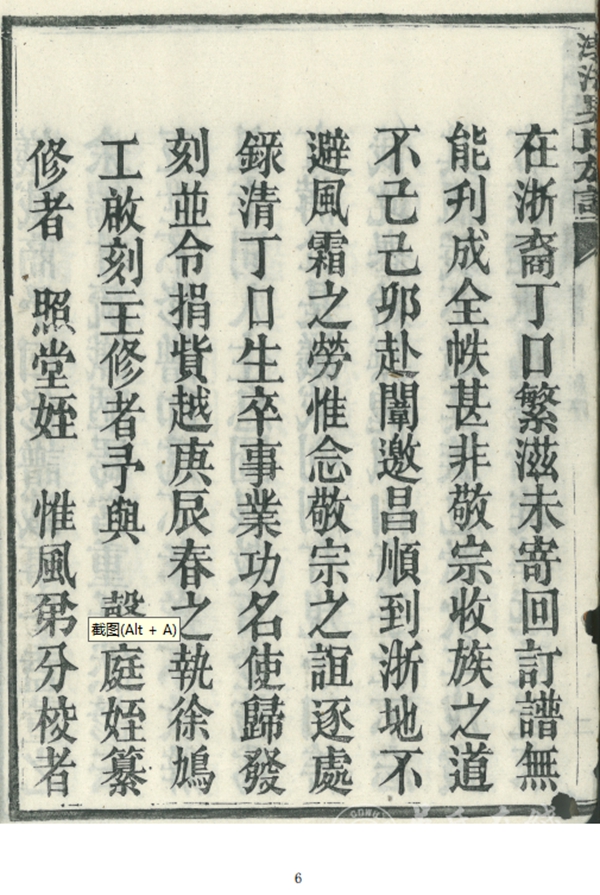 氏族譜
在浙裔丁口繁滋未寄回訂譜無
能刋成全帙甚非敬宗收族之道
不己己卯赴闈邀昌順到浙地不
避風霜之勞惟念敬宗之誼逐處
錄清丁口生卒事業功名使歸發
刻並令捐貲越庚辰春之執徐鳩
工啟刻主修者予與 庭姪纂
修者 照堂姪 惟風弟分校者
截图(Alt + A)
6